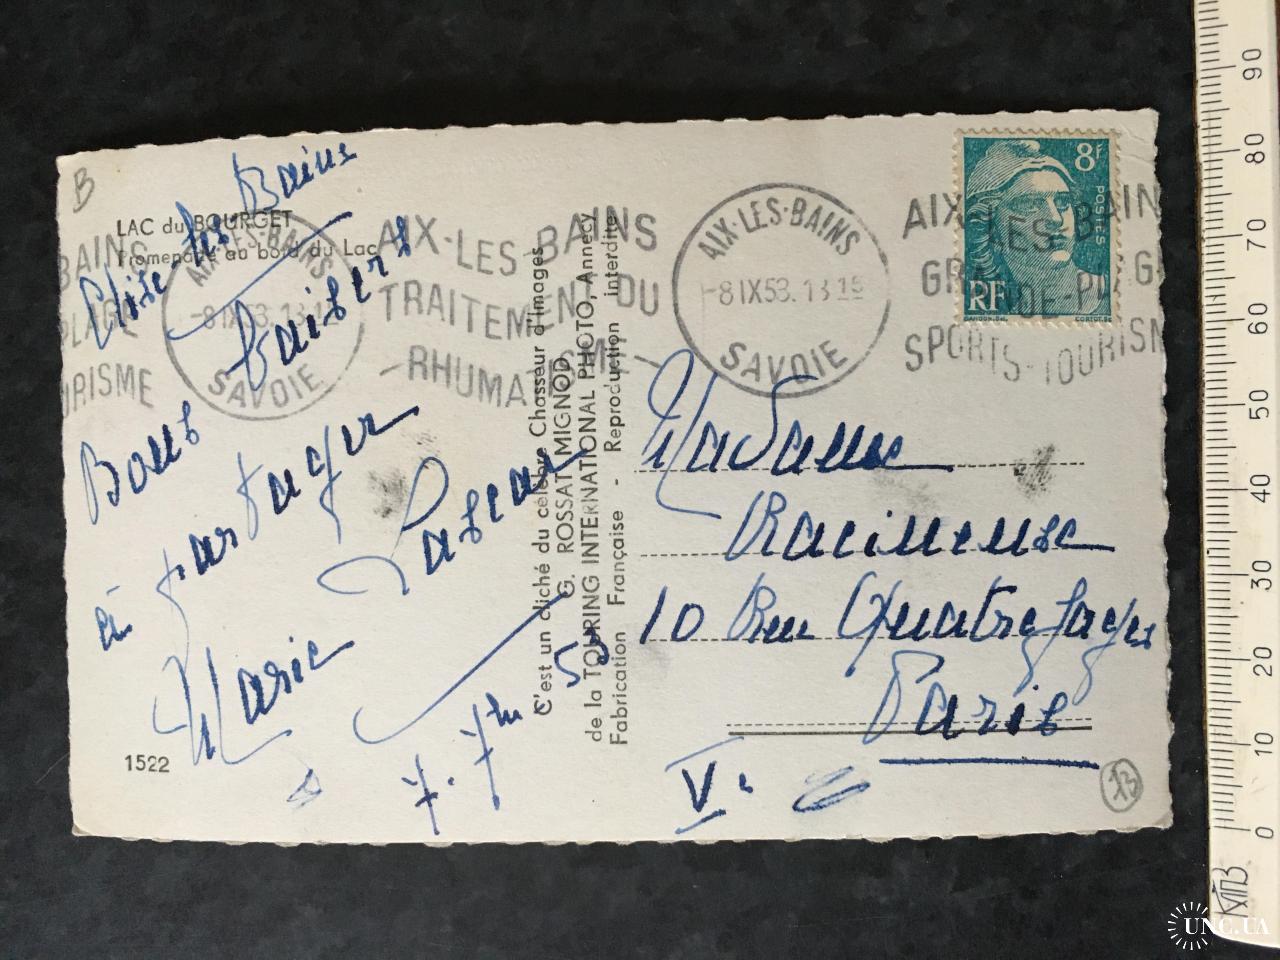 B
LAC du BOURGET
Promenade au bord du Lac
les Bains
baisers
Bons
à partager
Marie
7. 7bre 53
1522
BAINS
PLAGE
URISME
AIX-LES-BAINS
-8 IX 53. 1815
SAVOIE
AIX-LES-BAINS
TRAITEMENT DU
RHUMATISME
C'est un cliché du célèbre Chasseur d'Images
G. ROSSAT-MIGNOD
de la TOURING INTERNATIONAL PHOTO, Annecy
Fabrication Française - Reproduction interdite
AIX-LES-BAINS
-8 IX 53. 1815
SAVOIE
AIX-LES-BAINS
GRANDE-PLAGE
SPORTS-TOURISME
8F
POSTES
RF
GANDON DEL.
CORTOT SC
Madame
10 Rue Quatrefages
Paris
Ve
13
90
80
70
60
50
40
30
20
10
0
UNC.UA